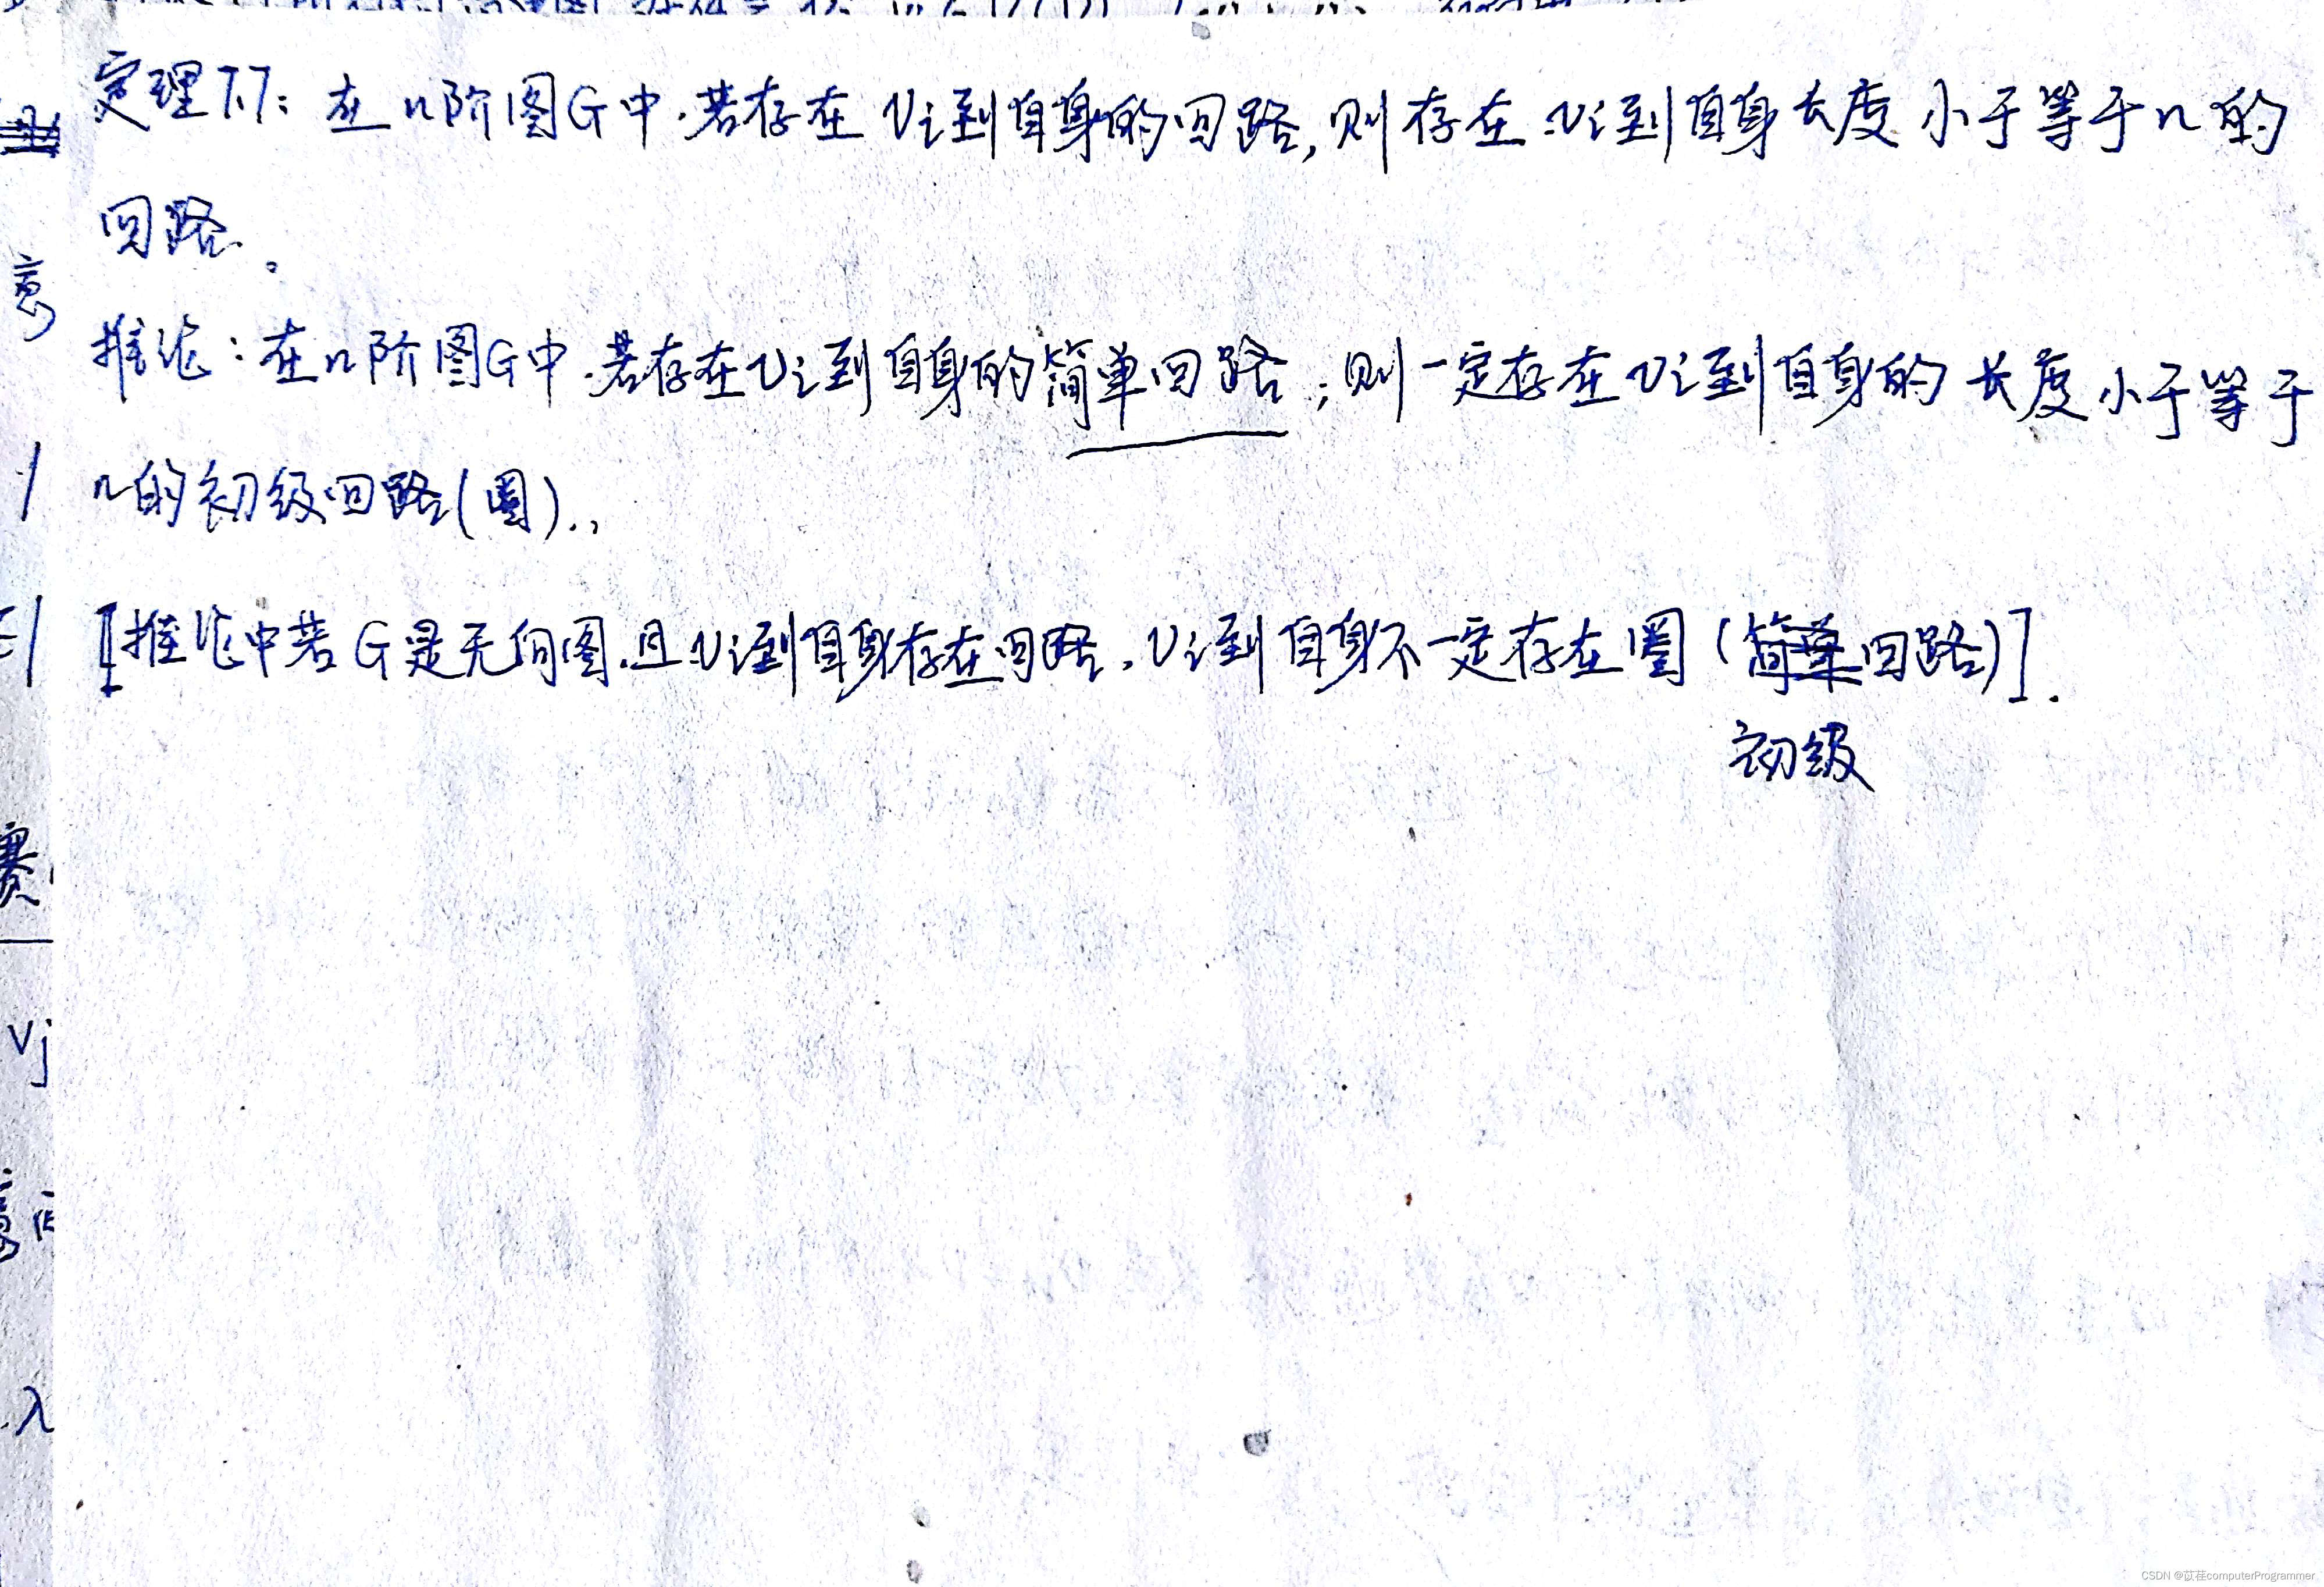 定理7.7：在n阶图G中.若存在vi到自身的回路,则存在vi到自身长度小于等于n的
回路。
推论：在n阶图G中.若存在vi到自身的简单回路,则一定存在vi到自身的长度小于等于
n的初级回路(圈).
[推论中若G是无向图.且vi到自身存在回路.vi到自身不一定存在圈(简单回路)].
初级
vj
入
CSDN @苡荏computerProgrammer